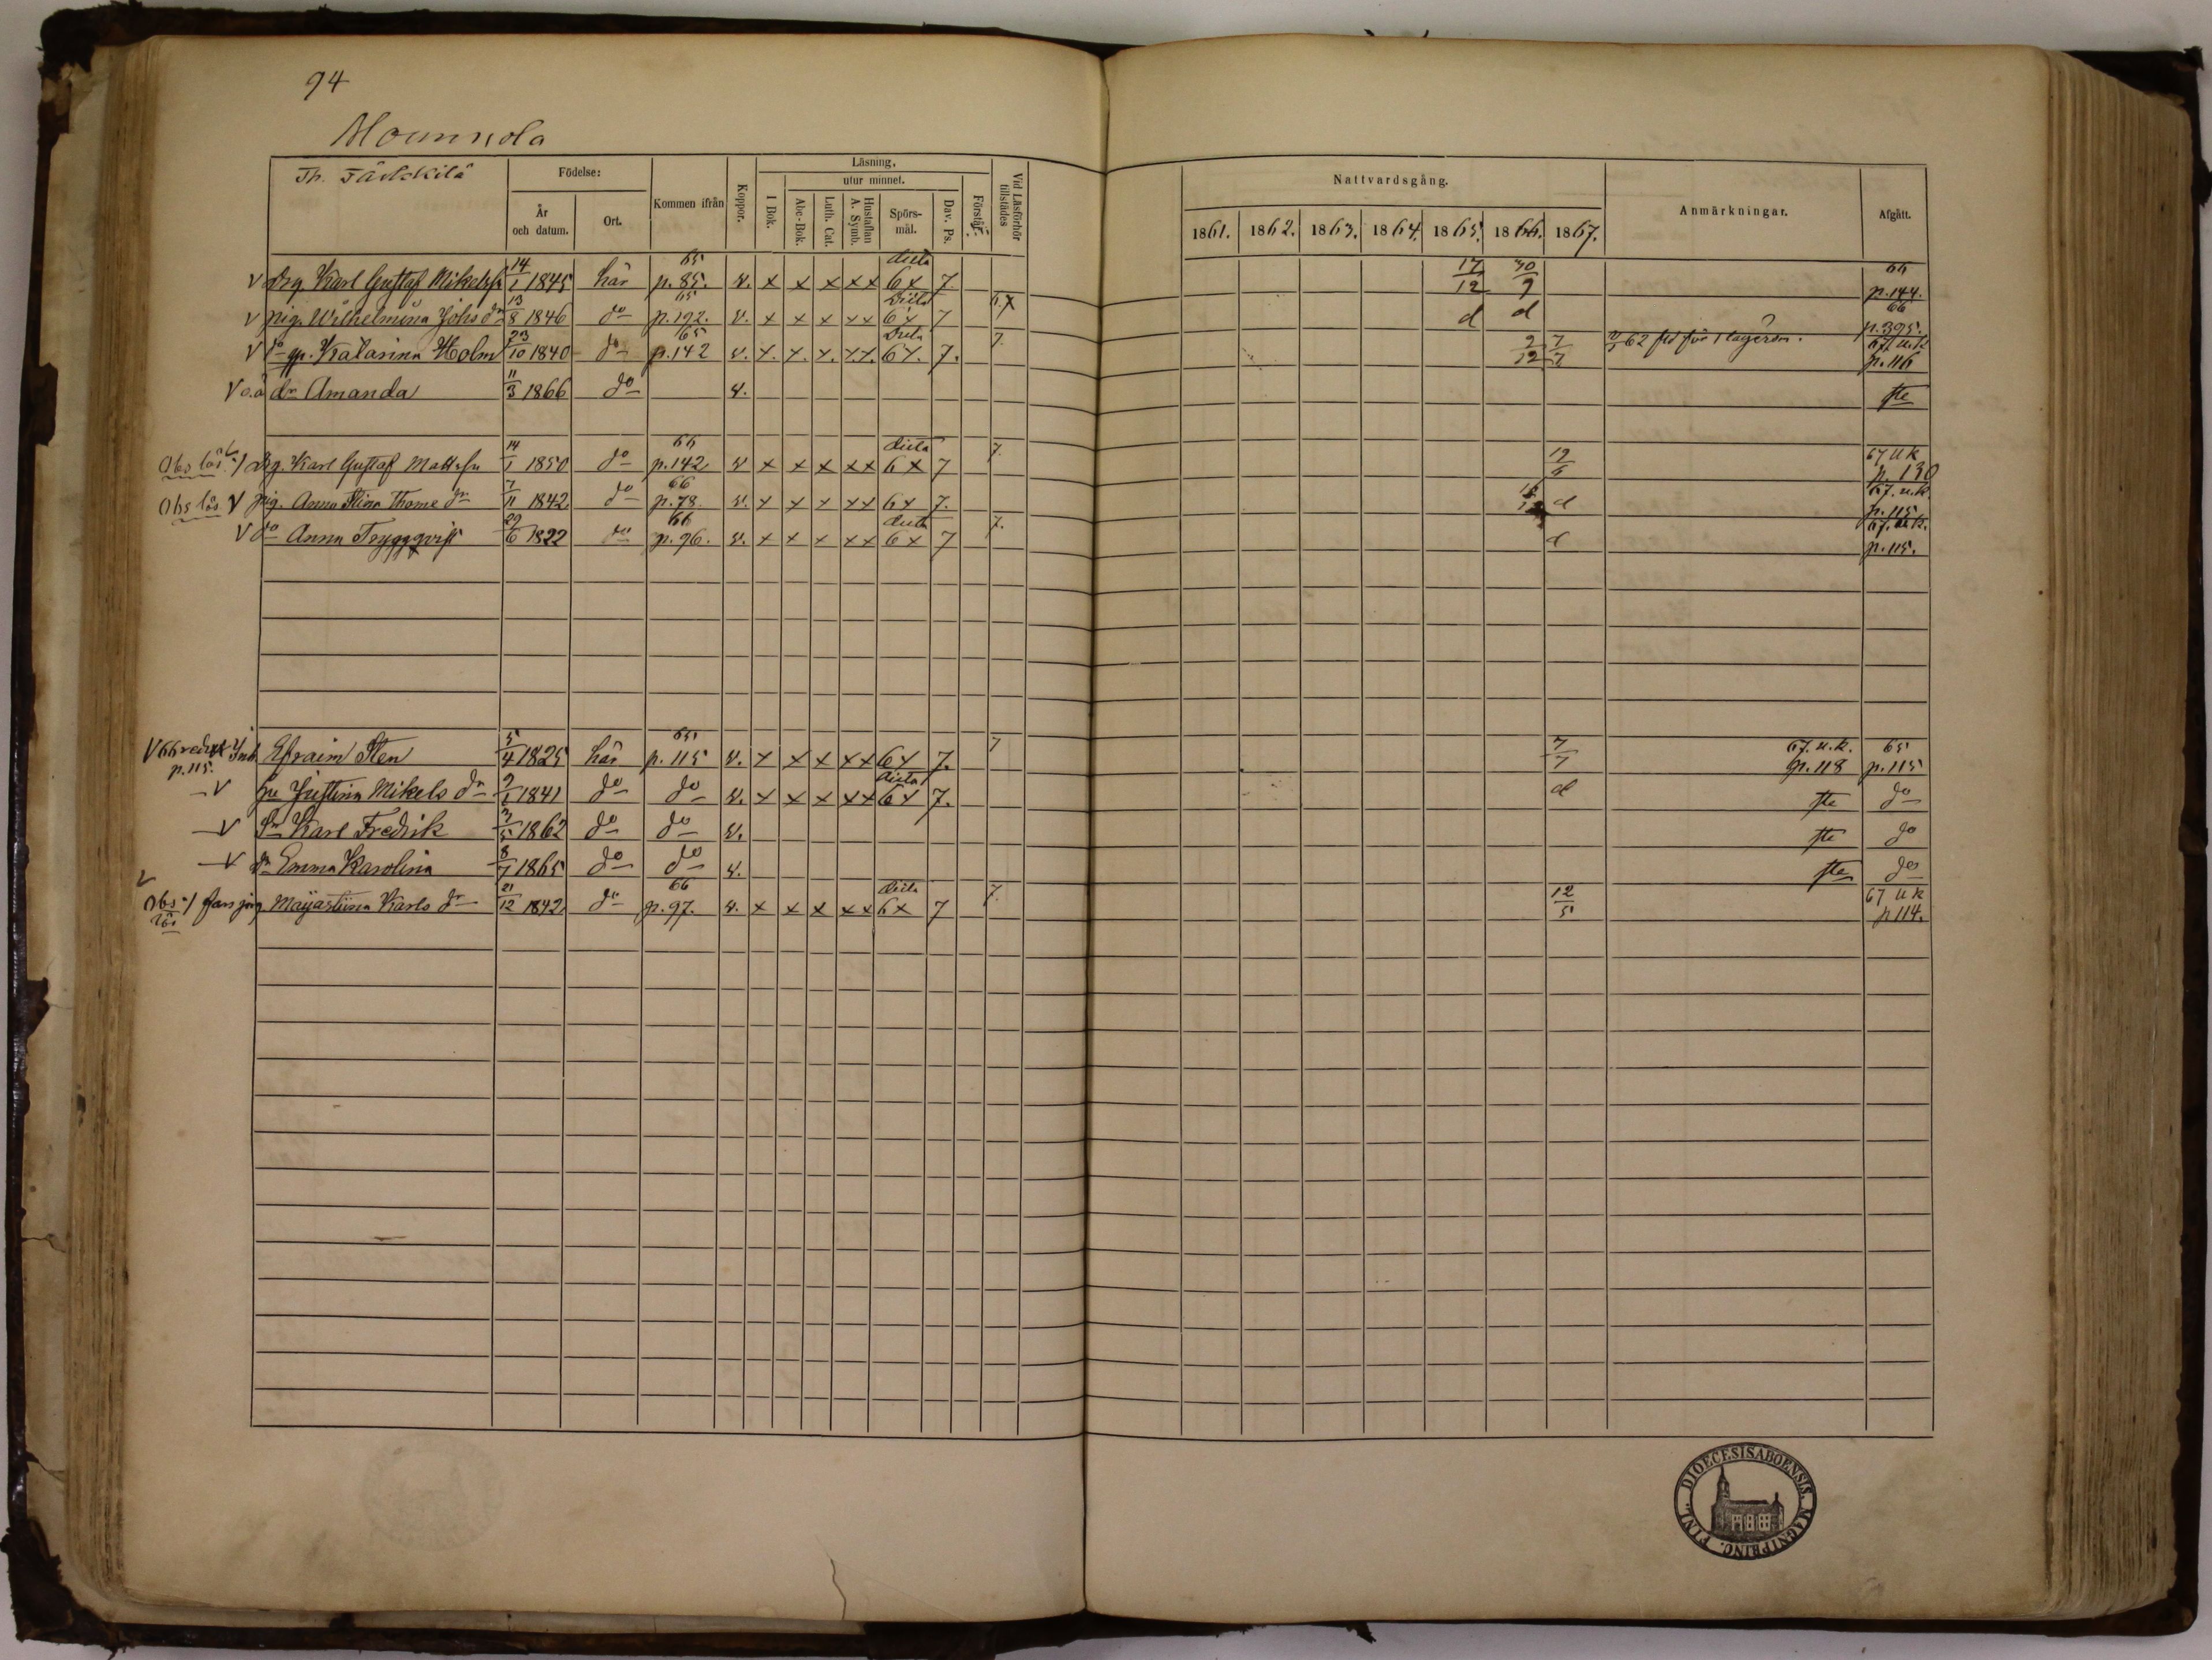 94
Födelse:
År och datum.
Ort.
Kommen ifrån
Koppor.
Läsning.
utur minnet.
I Bok.
Abc-Bok.
Luth. Cat.
Hustaflan A. Symb.
Spörsmål.
Dav. Ps.
Förstånd.
Vid Läsförhör tillstädes
Nattvardsgång.
1861. 1862. 1863. 1864. 1865. 1866. 1867.
Anmärkningar.
Afgått.
V drg Karl Gustaf Mikelss 14/1 1845 här 65 p. 85. v. x x x x x dicta 6 x 7 17/12 30/9 66 p. 144.
V pig. Wilhelmina Johs dr 13/8 1846 do 65 p. 192. v. x x x x x dicta 6 x 7 6.x d d 66 p. 395.
V do Katarina Holm 23/10 1840 do 65 p. 142 v. x. x. x. x. x. dicta 6 x. 7. 7. 2/12 7/7 62 för 67. u.k. p. 116
V o.ä dr Amanda 11/3 1866 do v. ste
Obs läs drg. Karl Gustaf Mattsn 14/1 1850 do 66 p. 142 v x x x x x dicta 6 x 7 7. 67 u k p. 130
Obs läs V pig. Anna Stina Thome dr 7/11 1842 do 66 p. 78. v. x x x x x 6 x 7. d 67. u.k. p. 115
V do Anna Tryggqvist 29/6 1822 do 66 p. 96. v. x x x x x dicta 6 x 7 7. d 67. u.k. p. 115.
V 66 p. 115. Inh. Efraim Sten 5/4 1825 här 65 p. 115 v. x x x x x 6 x 7. 7 7/7 67. u.k. p. 118 65 p. 115
V hu Justina Mikels dr 1841 do do v. x x x x x dicta 6 x 7. d ste do
V Sn Karl Fredrik 3/5 1862 do do v. ste do
V dr Emma Karolina 8/7 1865 do do v. ste do
V Obs läs pig Maijastina Karls dr 21/12 1842 do 66 p. 97. v. x x x x x dicta 6 x 7 7. 12/5 67 u k p 114.
DIOECESIS ABOENSIS. MAGNI PRINC. FINL.